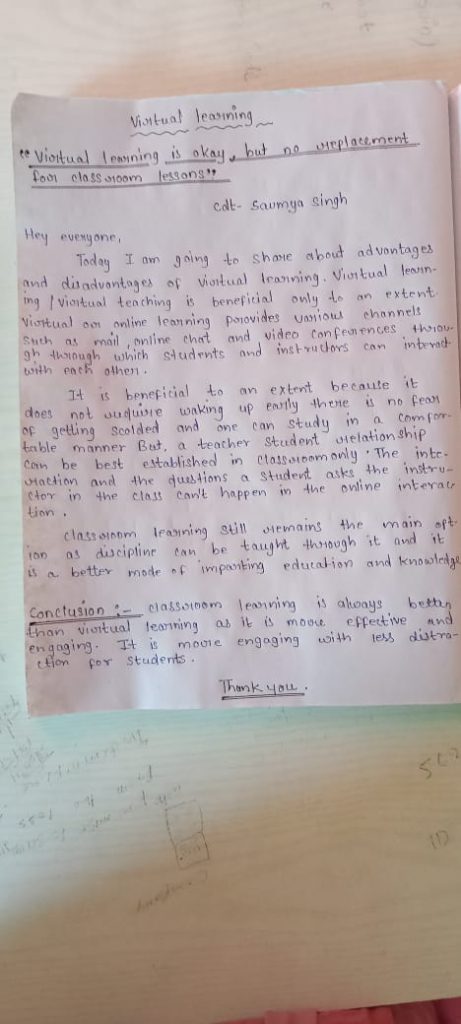 Virtual learning
"Virtual learning is okay, but no replacement
for classroom lessons"
Cdt- Saumya Singh
Hey everyone,
Today I am going to share about advantages
and disadvantages of virtual learning. Virtual learn-
ing / virtual teaching is beneficial only to an extent.
Virtual or online learning provides various channels
such as mail, online chat and video conferences throu-
gh through which students and instructors can interact
with each other.
It is beneficial to an extent because it
does not require waking up early there is no fear
of getting scolded and one can study in a comfor-
table manner But, a teacher student relationship
can be best established in classroom only. The inte-
raction and the questions a student asks the instru-
ctor in the class can't happen in the online interac
tion.
classroom learning still remains the main opt-
ion as discipline can be taught through it and it
is a better mode of imparting education and knowledge
Conclusion :- classroom learning is always better
than virtual learning as it is more effective and
engaging. It is more engaging with less distra-
ction for students.
Thank you.